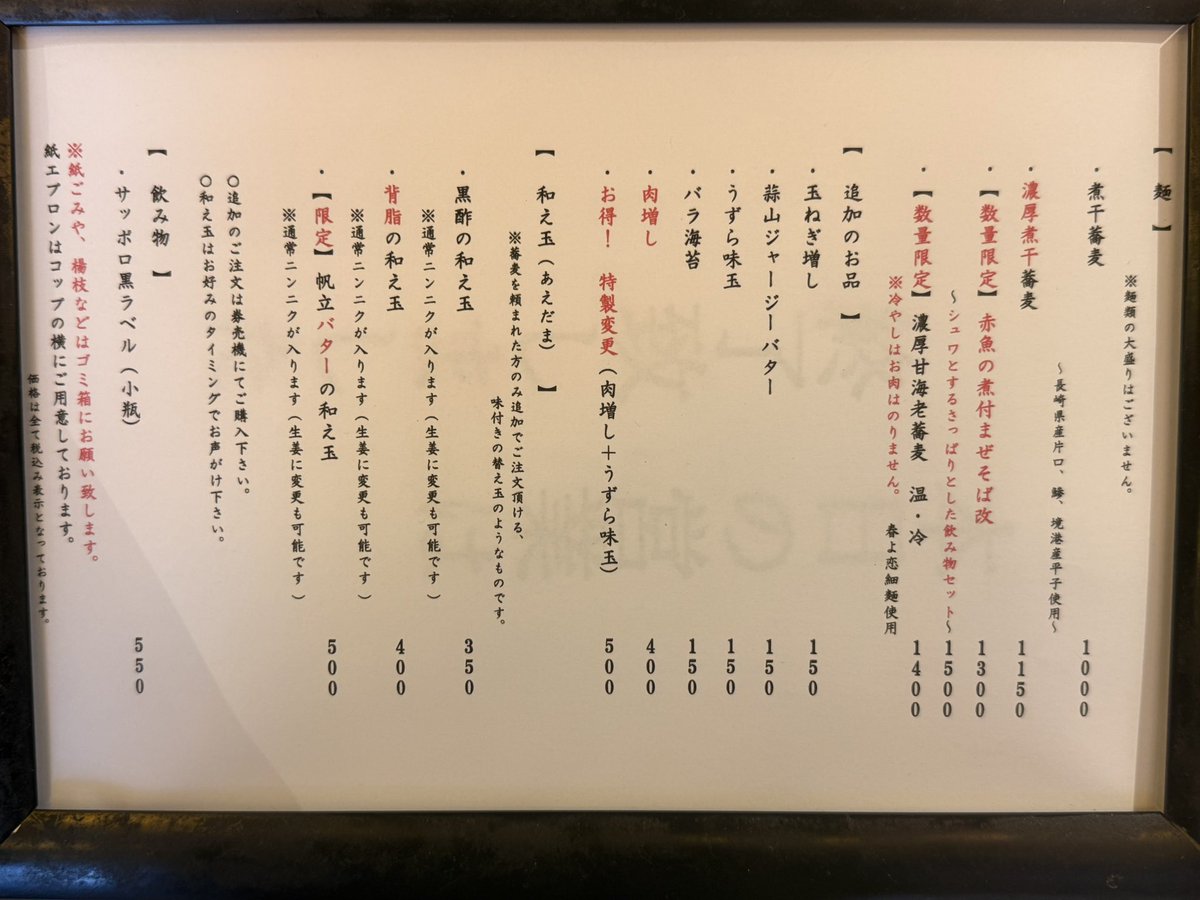 【 麺 】
※麺類の大盛りはございません。
・煮干蕎麦 1000
～長崎県産片口、鯵、境港産平子使用～
・濃厚煮干蕎麦 1150
・【数量限定】赤魚の煮付まぜそば改 1300
～シュワとするさっぱりとした飲み物セット～ 1500
・【数量限定】濃厚甘海老蕎麦 温・冷 1400
※冷やしはお肉はのりません。 春よ恋細麺使用
【 追加のお品 】
・玉ねぎ増し 150
・蒜山ジャージーバター 150
・うずら味玉 150
・バラ海苔 150
・肉増し 400
・お得！ 特製変更（肉増し＋うずら味玉） 500
【 和え玉（あえだま） 】
※蕎麦を頼まれた方のみ追加でご注文頂ける、
味付きの替え玉のようなものです。
・黒酢の和え玉 350
※通常ニンニクが入ります（生姜に変更も可能です）
・背脂の和え玉 400
※通常ニンニクが入ります（生姜に変更も可能です）
・【限定】帆立バターの和え玉 500
※通常ニンニクが入ります（生姜に変更も可能です）
〇追加のご注文は券売機にてご購入下さい。
〇和え玉はお好みのタイミングでお声がけ下さい。
【 飲み物 】
・サッポロ黒ラベル（小瓶） 550
※紙ごみや、楊枝などはゴミ箱にお願い致します。
紙エプロンはコップの横にご用意しております。
価格は全て税込み表示となっております。